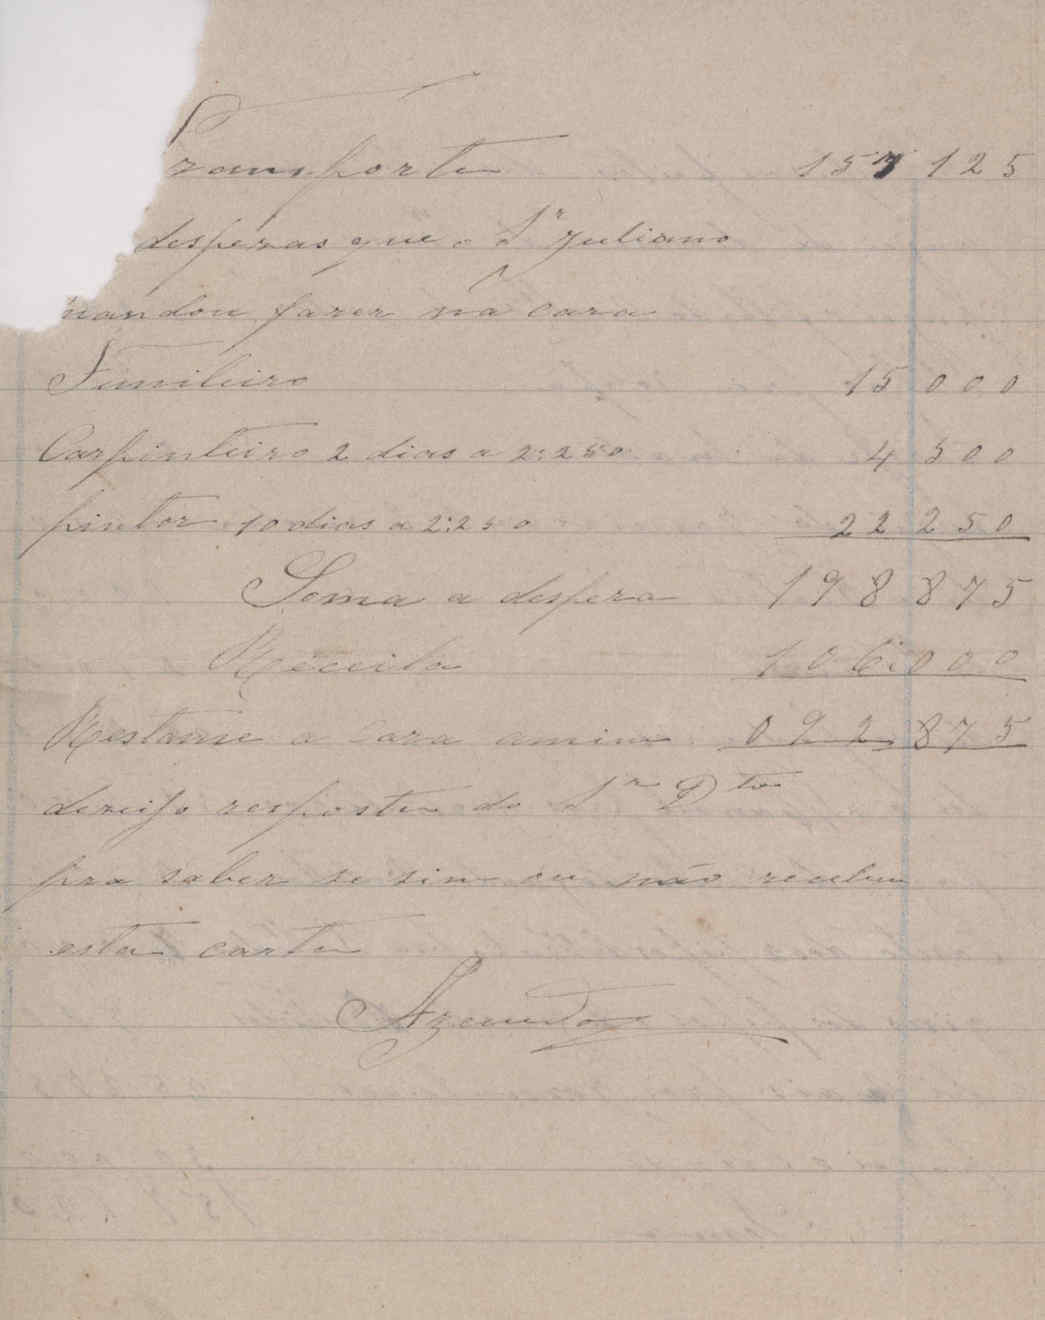 Transporte 157 125
despezas que o Sr Juliano
mandou fazer na caza
Funileiro 15 000
Carpinteiro 2 dias a 2:250 4 500
pintor 10 dias a 2:250 22 250
Soma a despeza 198 875
Receita 106:000
Restame a Caza amim 092 875
dezeijo resposta do Sr Dtor
pra saber se sim ou não recebeu
esta carta
Azevedo